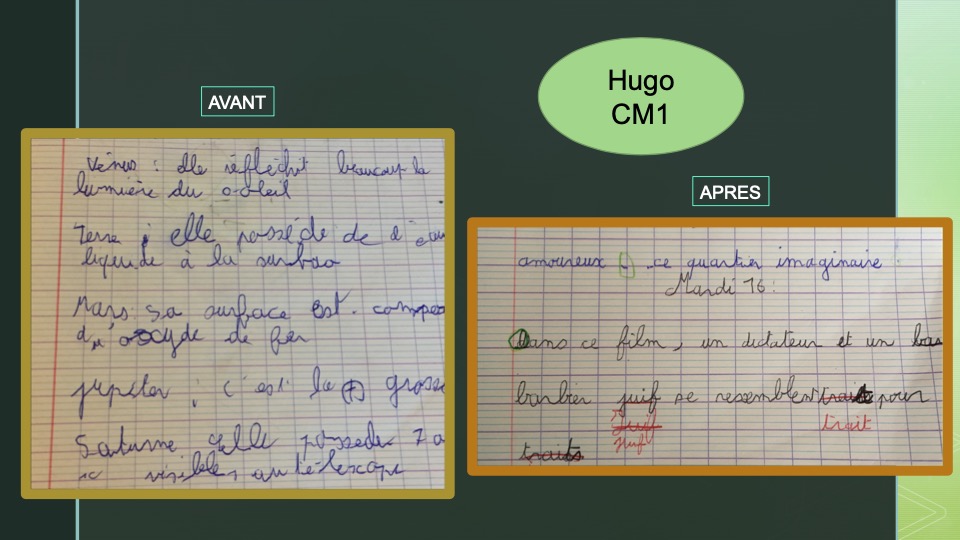 Hugo
CM1
AVANT
Vénus : elle réfléchit beaucoup la
lumière du soleil
Terre : elle possède de l'eau
liquide à la
Mars : sa surface est compos
d'oxcyde de fer
jupiter : c'est la (+) gross
Saturne elle posséde 7 a
visibles au télescope
APRES
amoureux ce quartier imaginaire
Mardi 16 :
Dans ce film, un dictateur et un bas
barbier juif se ressemblent trait pour
juif
juif
trait
traits